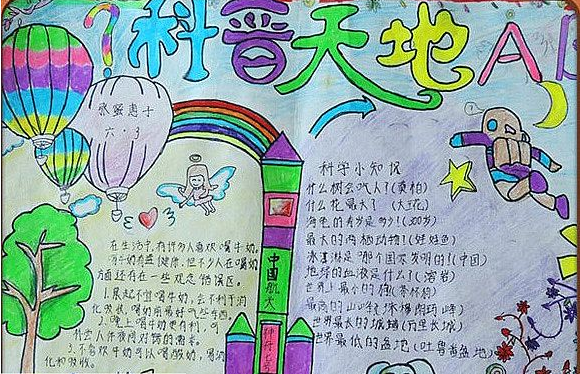 科普天地
A
六·3
在生活中,有许多人喜欢喝牛奶。
喝牛奶有益健康,但不少人在喝奶
方面还存在一些观念错误区。
1.晨起不宜喝牛奶,会不利于消
化吸收,喝奶前最好吃些东西。
2.晚上喝牛奶更有利,可
补充人体夜间对钙的需求。
3.不喜欢牛奶可以喝酸奶,喝消
化和吸收。
中国航天
神舟七号
科学小知识
什么树会吃人?(奠柏)
什么花最大?(大王花)
海龟的寿岁是多少?(300岁)
最大的两栖动物?(娃娃鱼)
冰淇淋是哪个国家发明的?(中国)
地球的血液是什么?(溶岩)
世界上最小的猪(茶杯猪)
最高的山峰(珠穆朗玛峰)
世界最长的城墙(万里长城)
世界最低的盆地(吐鲁番盆地)